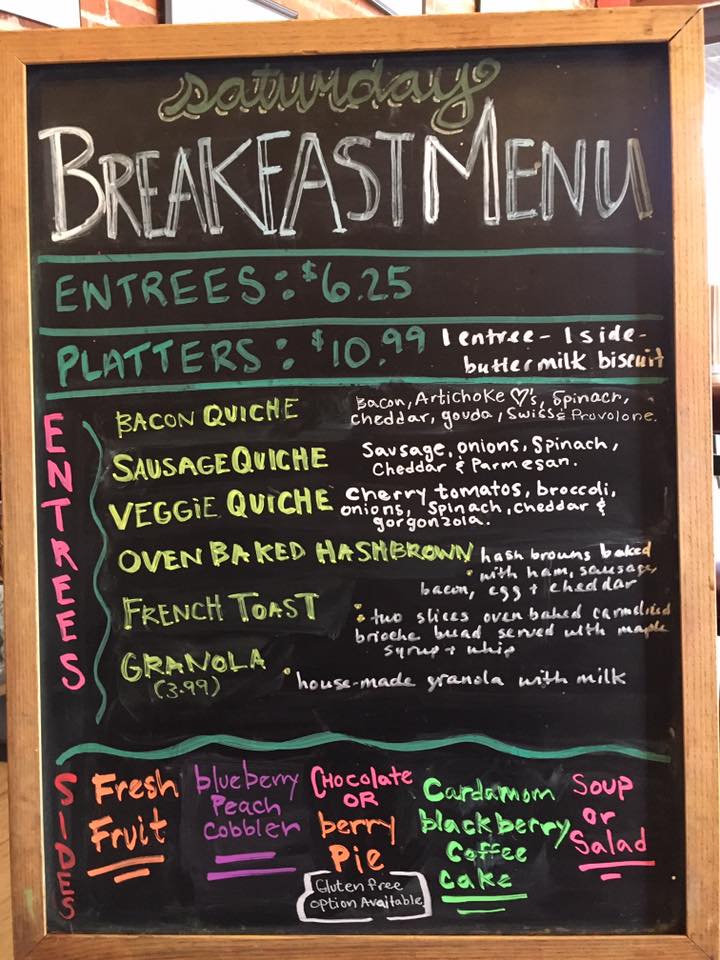 saturday
BREAKFAST MENU
ENTREES: $6.25
PLATTERS: $10.99 1 entree - 1 side -
buttermilk biscuit
ENTREES
BACON QUICHE Bacon, Artichoke ♡'s, Spinach,
cheddar, gouda, Swiss & Provolone.
SAUSAGE QUICHE Sausage, onions, Spinach,
Cheddar & Parmesan.
VEGGIE QUICHE cherry tomatos, broccoli,
onions, Spinach, cheddar &
gorgonzola.
OVEN BAKED HASHBROWN hash browns baked
with ham, sausage,
bacon, egg + cheddar
FRENCH TOAST two slices oven baked carmelized
brioche bread served with maple
syrup + whip
GRANOLA
(3.99) house-made granola with milk
SIDES
Fresh
Fruit
blueberry
Peach
Cobbler
CHocolate
OR
berry
Pie
Gluten free
option Available
Cardamom
blackberry
Coffee
Cake
Soup
or
Salad